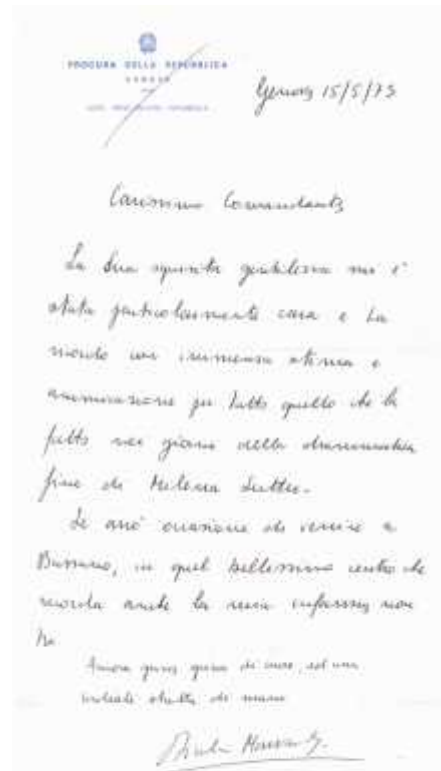 PROCURA DELLA REPUBBLICA
GENOVA
Genova 15/5/75
Carissimo Comandante,
La Sua squisita gentilezza mi è
stata particolarmente cara e La
ricordo con immensa stima e
ammirazione per tutto quello che ha
fatto nei giorni della drammatica
fine di Milena Sutter.
Se avrò occasione di venire a
in quel bellissimo centro che
ricorda anche la mia infanzia, non
Ancora grazie di cuore, ed una
cordiale stretta di mano